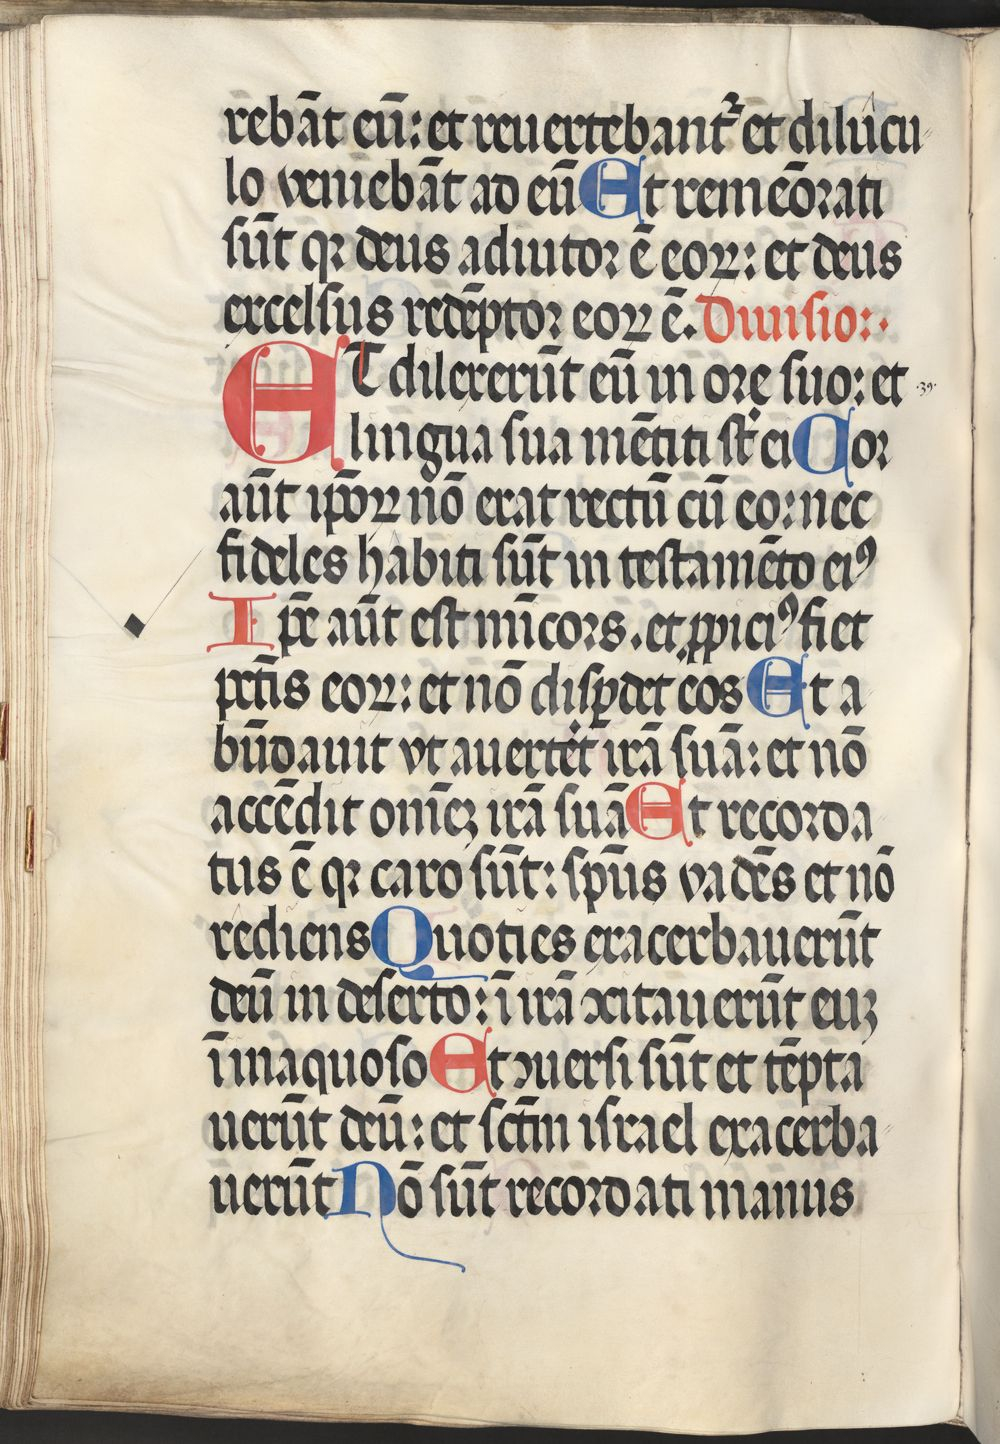 rebāt eū: et reuertebantᷣ et dilucu
lo veniebāt ad eū Et remeōrati
sūt qꝛ deus adiutoꝛ ē eoꝝ: et deus
excelsus redēptoꝛ eoꝝ ē. Diuisio:·
ET dilexerūt eū in oꝛe suo: et ·39·
lingua sua mētiti st̄ ei Coꝛ
aūt ip̄oꝝ nō erat rectū cū eo: nec
fideles habiti sūt in testamēto eiꝰ
Ip̄e aūt est mīcoꝛs. et ꝓpiciꝰ fiet
pctīs eoꝝ: et nō disꝑdet eos Et a
būdauit vt auerteret irā suā: et nō
accēdit omēꝫ irā suā Et recoꝛda
tus ē qꝛ caro sūt: spūs vadēs et nō
rediens Quoties exacerbauerūt
deū in deserto: ī irā ↄcitauerūt euꝫ
ī inaquoso Et ↄuersi sūt et tēpta
uerūt deū: et sctm̄ israel exacerba
uerūt Nō sūt recoꝛdati manus